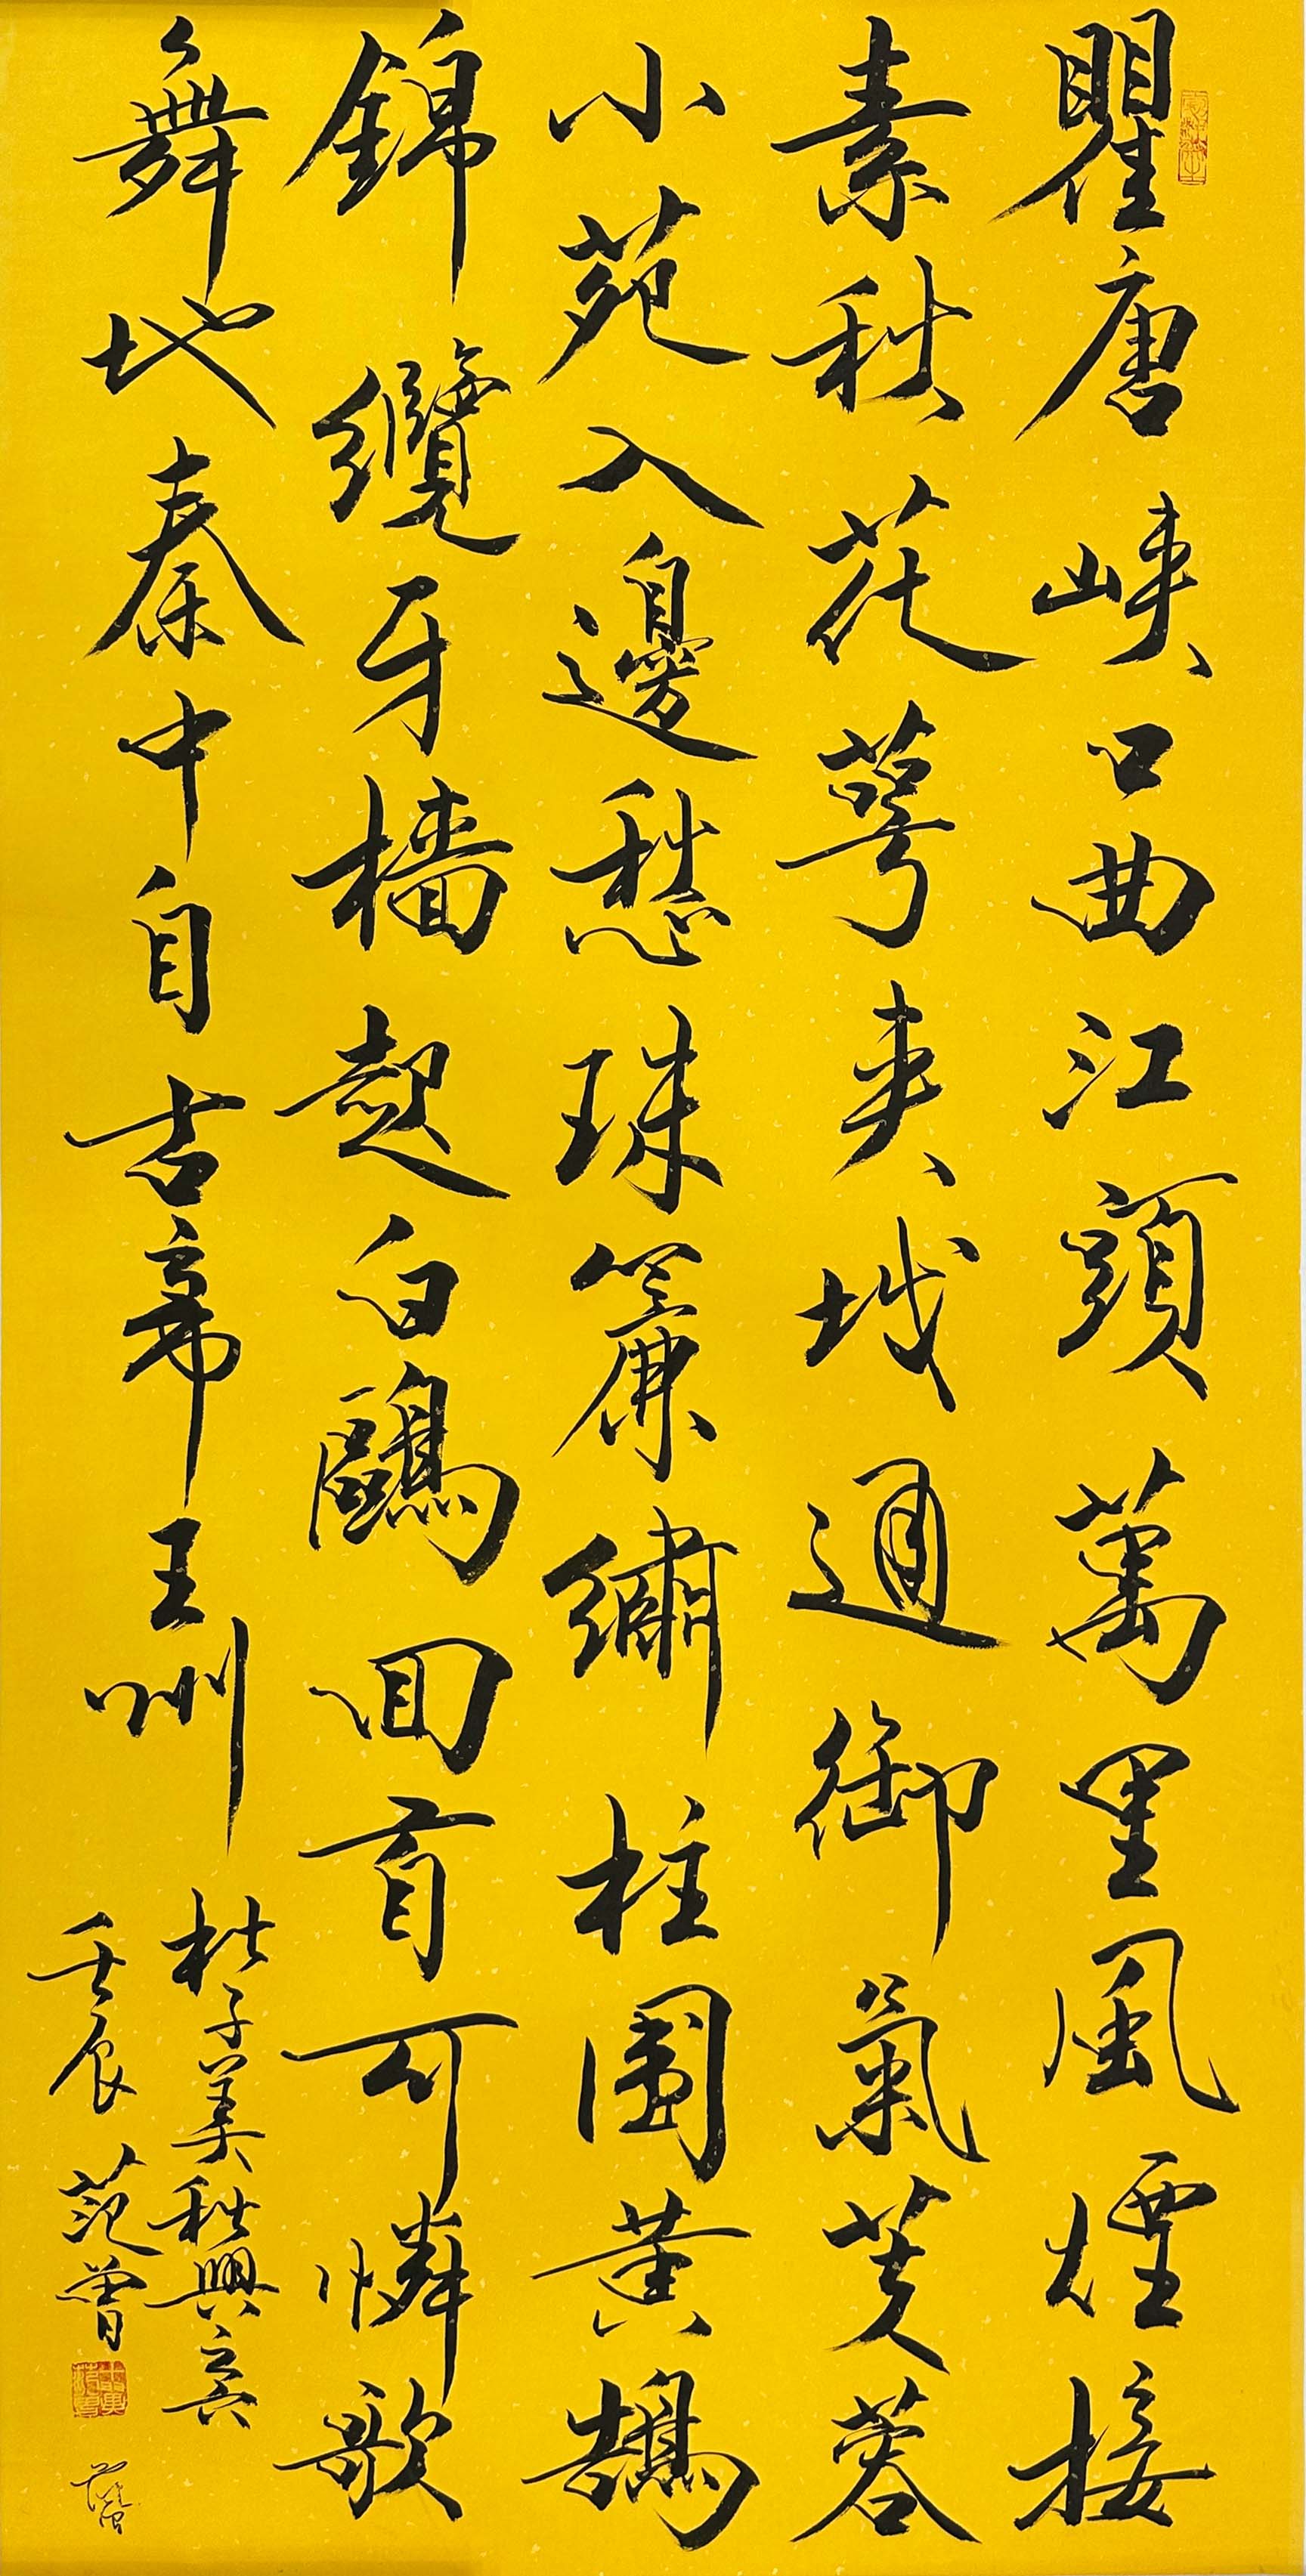 瞿唐峽口曲江頭萬里風煙接
素秋花萼夾城通御氣芙蓉
小苑入邊愁珠簾繡柱圍黃鵠
錦纜牙檣起白鷗回首可憐歌
舞地秦中自古帝王州
杜子美秋興之六
壬辰范曾